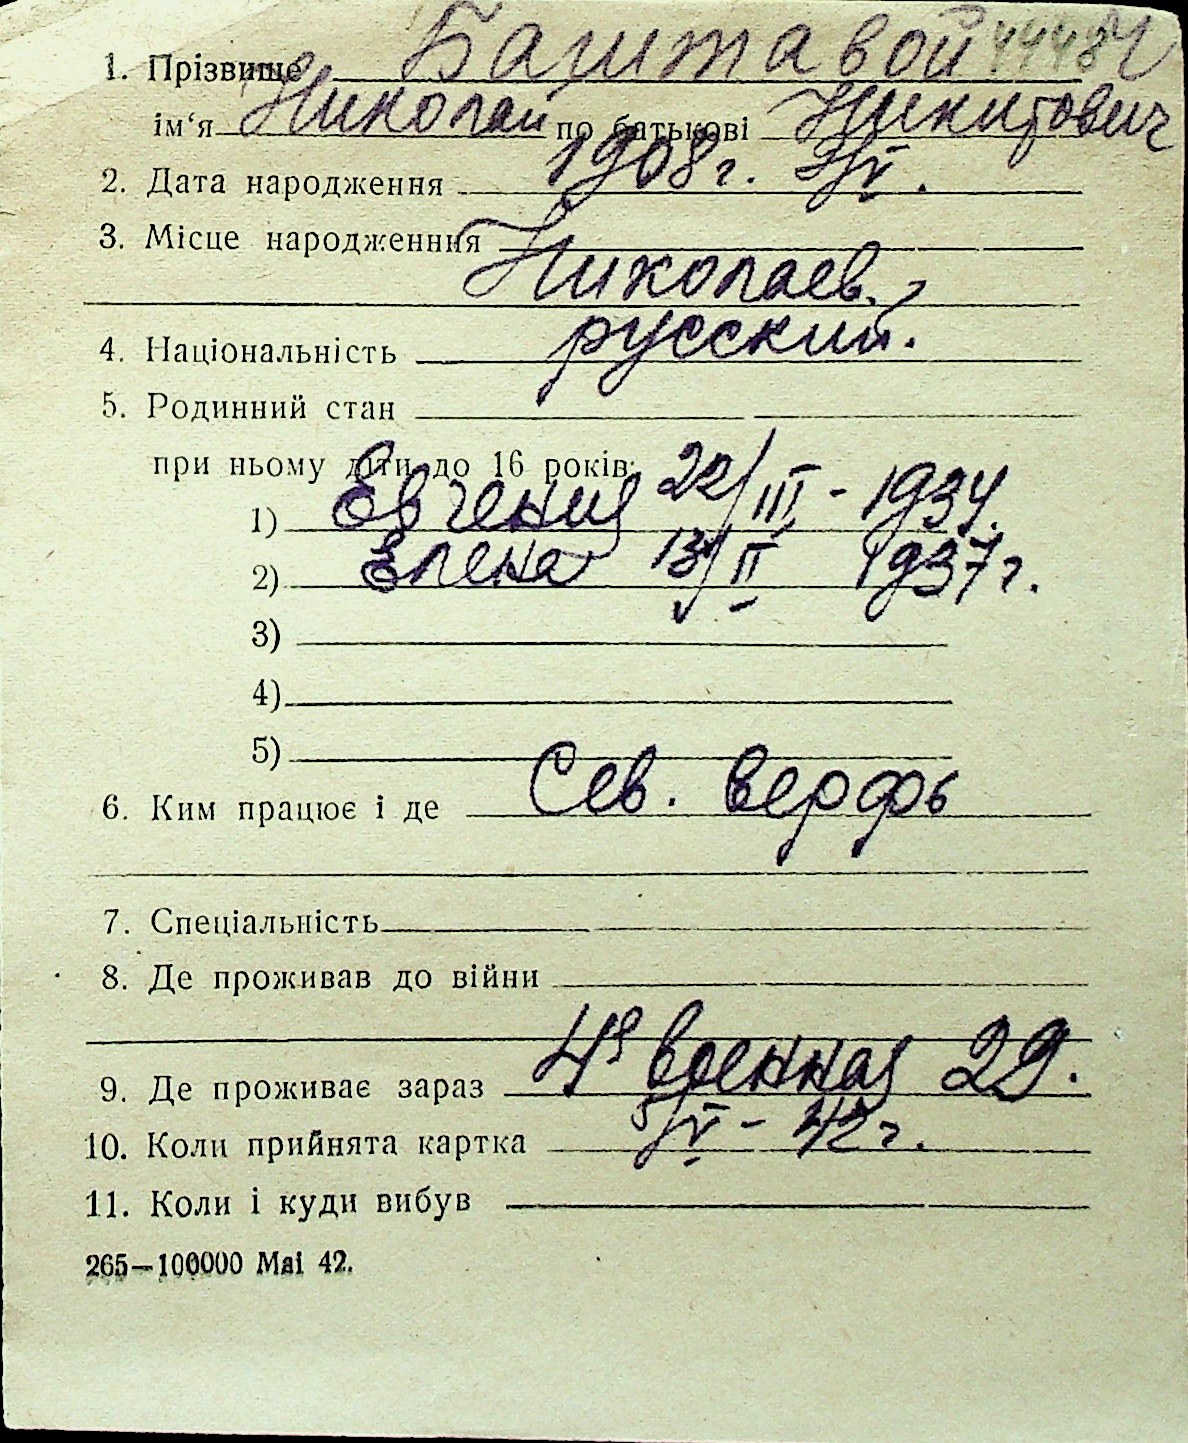 1. Прізвище Баштавой
ім‘я Николай по батькові Никитович
2. Дата народження 1908 г. 3/IV.
3. Місце народженння
Николаев.
4. Національність русский.
5. Родинний стан
при ньому діти до 16 років:
1) Евгения 22/III - 1934.
2) Елена 13/II 1937 г.
3)
4)
5)
6. Ким працює і де Сев. верфь
7. Спеціальність
8. Де проживав до війни
9. Де проживає зараз 4я военная 29.
10. Коли прийнята картка 5/V - 42 г.
11. Коли і куди вибув
265—100000 Mai 42.